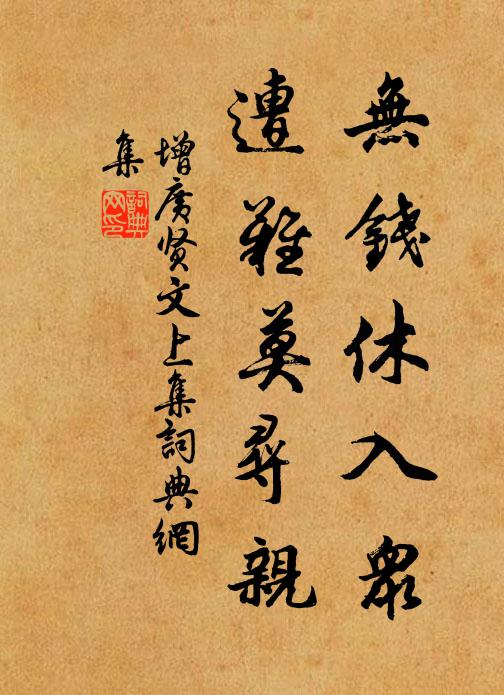 無錢休入衆
遭難莫尋親
增廣贤文上集詞典網
集
詞典网印